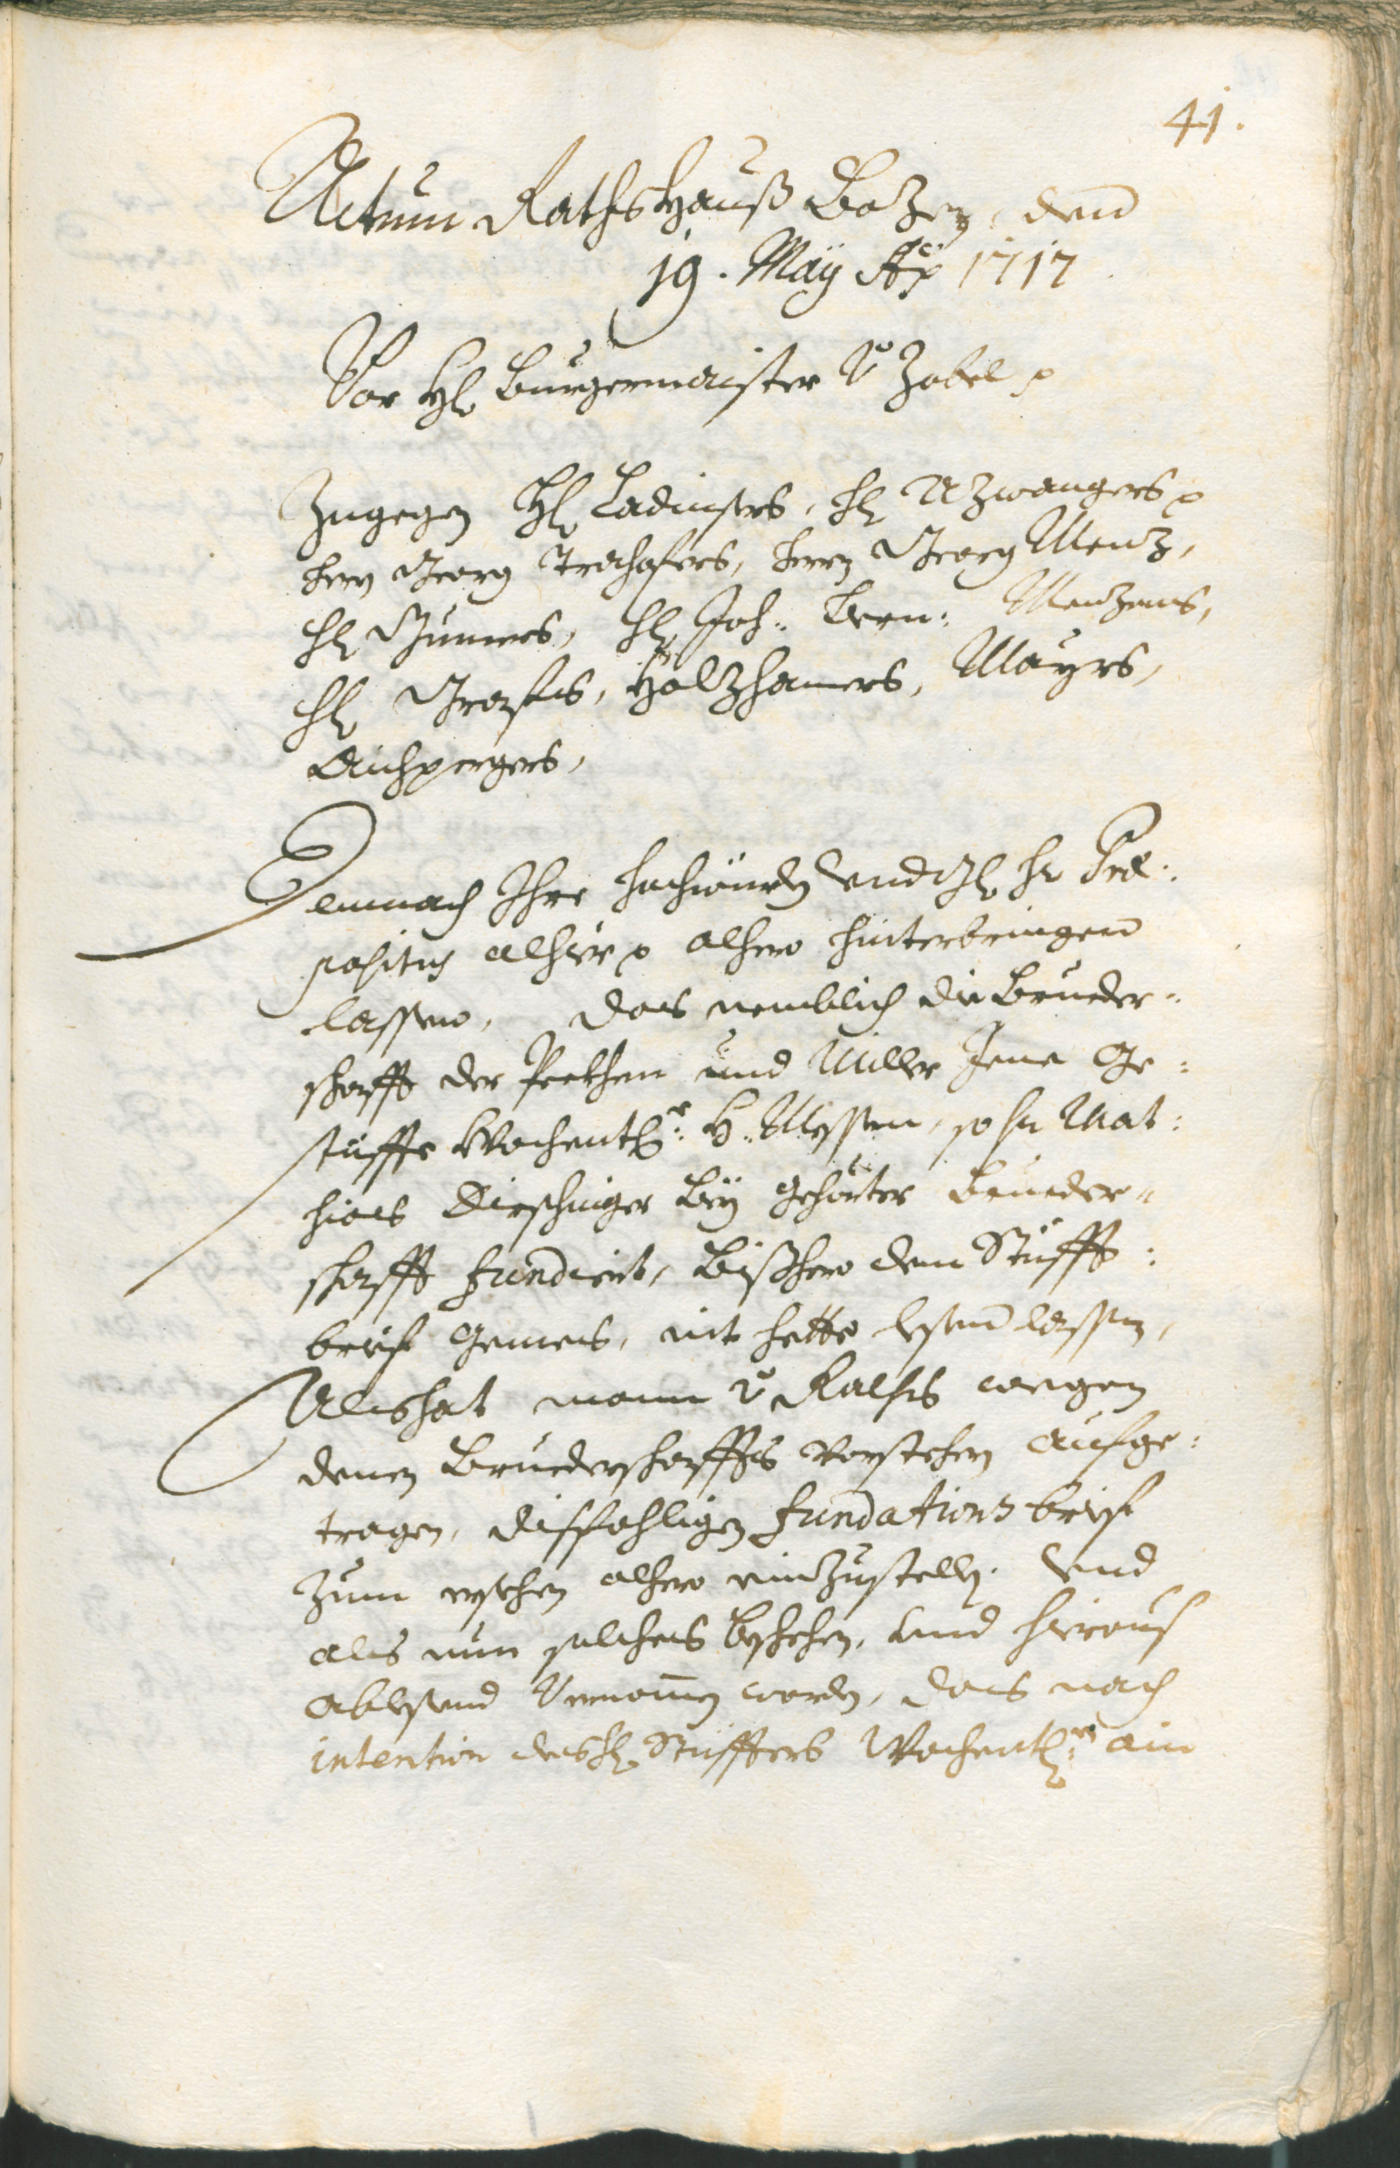 41.
Actum Rathshauß Bozen, den
19. Maÿ Ao 1717
Vor Hl: Burgermaister v: Zobel p
Zugegen Hl: Ladinsers, Hl: Azwangers p
Herrn Georg Trochofers, Herrn Georg Menz,
Hl: Gumers, Hl: Joh: Bern: Menzens,
Hl: Graffs, Holzhamers, Mayrs,
Aichpergers,
Demnach Ihre Hochwürden und Hr Præ:
positus alhier p alhero hinterbringen
lassen, das nemblich die Brueder-
schafft der Pekhen und Miller Jene Ge:
stüffte Wochentl: H: Messen, so Hr Mat:
thias Dirschinger beÿ gehörter Brueder-
schafft fundiert, bißhero dem Stüfft:
brief gemes, nit hette lesen lassen,
Als hat mann v: Raths wegen
denen Bruederschaffts Vorstehern aufge:
tragen, dissfahligen fundations brief
zum ersehen alhero einzustellen. Und
als nun solches beschehen, und hieraus
ablesend vernomen worden, das nach
intention des Hl: Stüffters Wochentl: ain